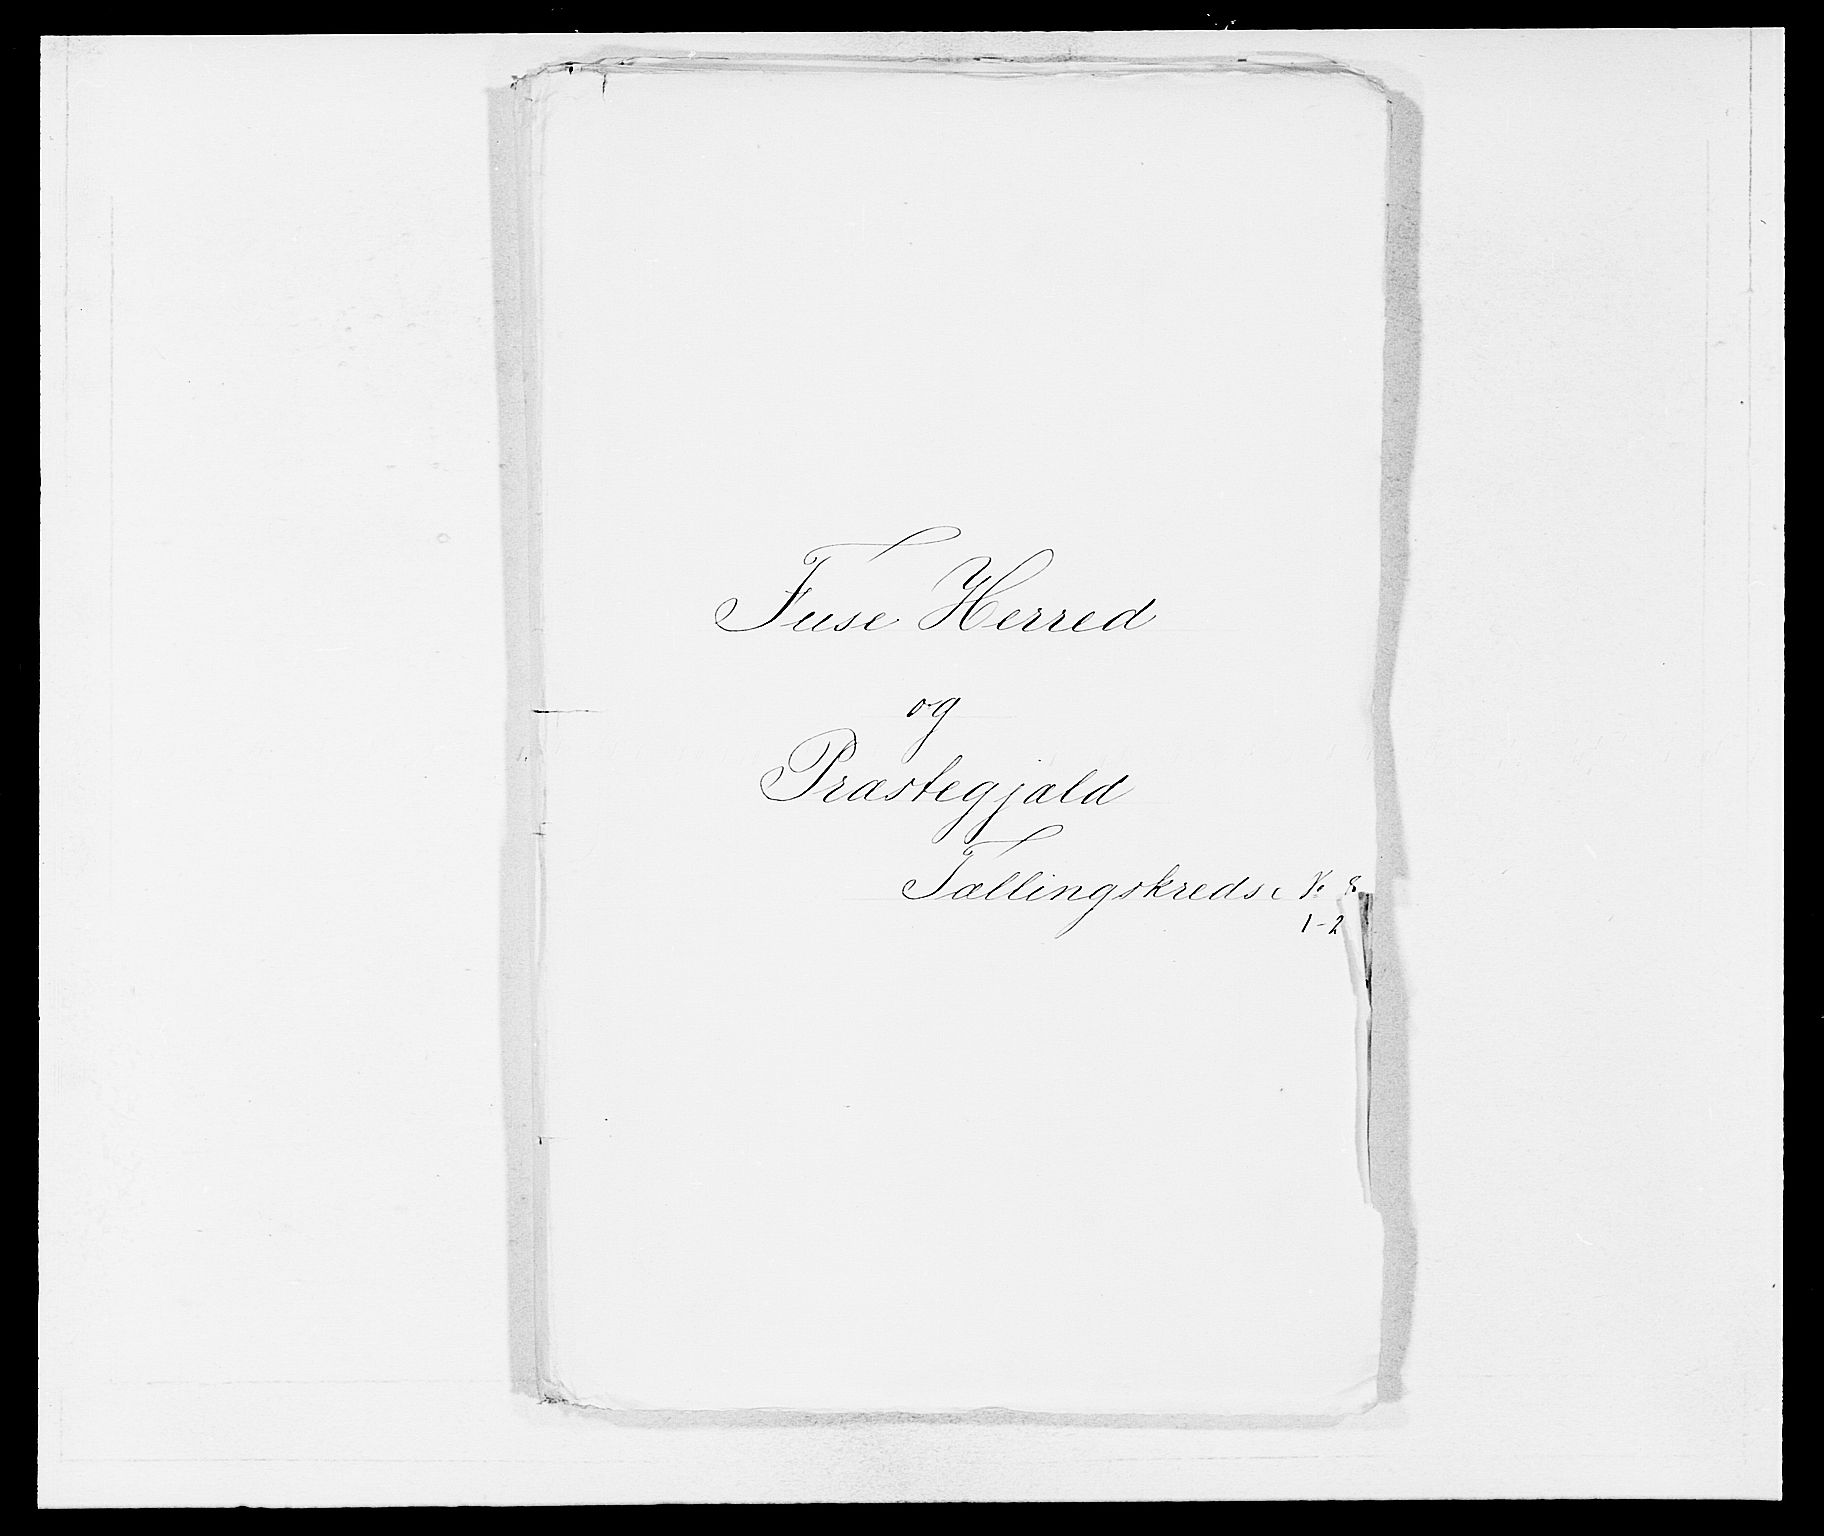 Fuse Herred
og
Præstegjæld
Tællingskredse No
1-2